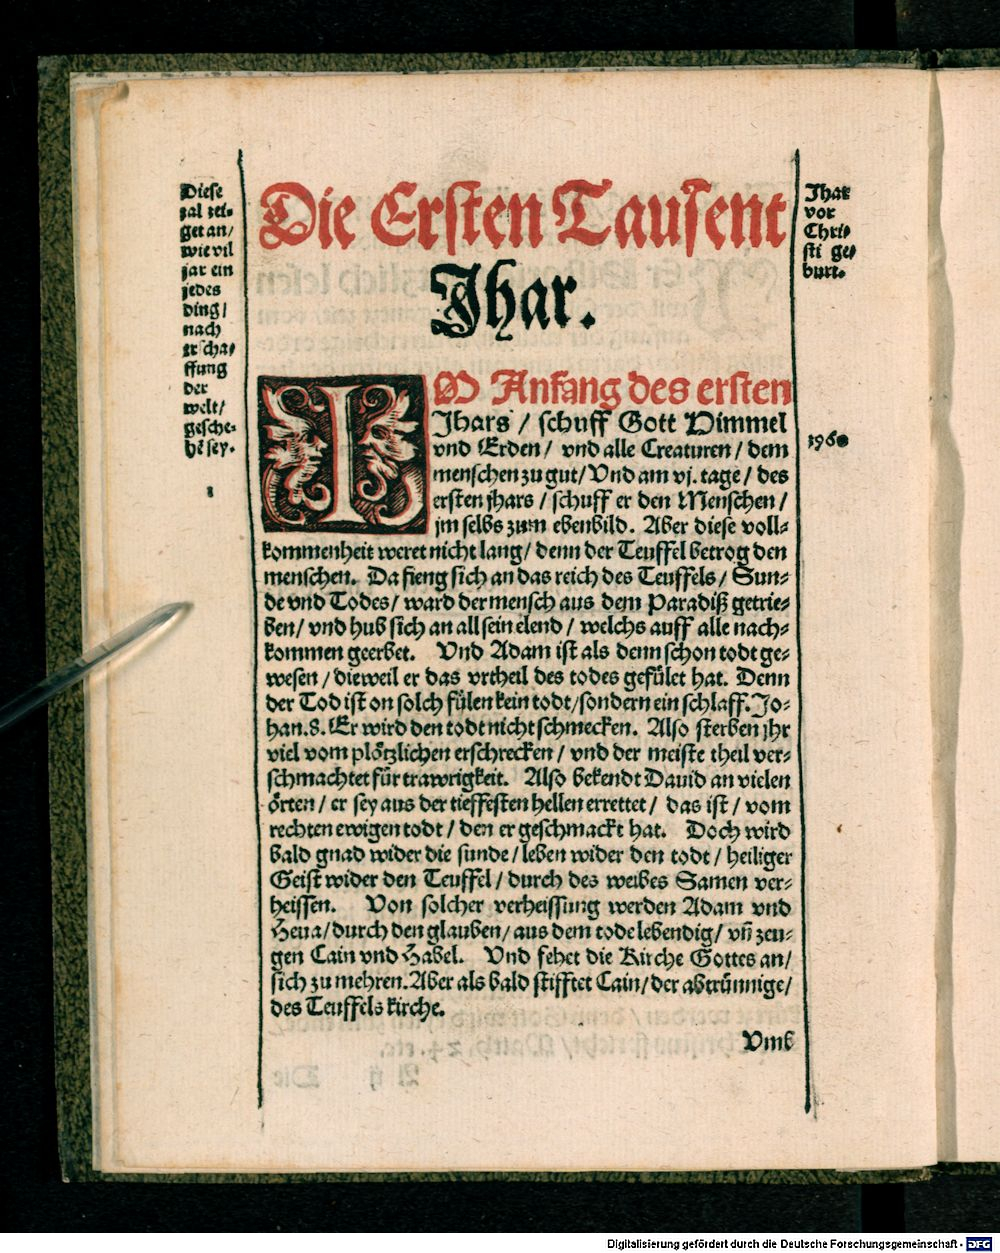 Die Ersten Tausent
Jhar.
Diese
zal zei-
get an/
wie vil
jar ein
jedes
ding/
nach
erscha-
ffung
der
welt/
gesche-
hẽ sey.
1
IM Anfang des ersten
Jhars / schuff Gott Himmel
vnd Erden / vnd alle Creaturen / dem
menschen zu gut / Vnd am vj. tage / des
ersten jhars / schuff er den Menschen /
jm selbs zum ebenbild. Aber diese voll-
kommenheit weret nicht lang / denn der Teuffel betrog den
menschen. Da fieng sich an das reich des Teuffels / Sun-
de vnd Todes / ward der mensch aus dem Paradiß getrie-
ben / vnd hub sich an all sein elend / welchs auff alle nach-
kommen geerbet. Vnd Adam ist als denn schon todt ge-
wesen / dieweil er das vrtheil des todes gefület hat. Denn
der Tod ist on solch fülen kein todt / sondern ein schlaff. Jo-
han. 8. Er wird den todt nicht schmecken. Also sterben jhr
viel vom plötzlichen erschrecken / vnd der meiste theil ver-
schmachtet für trawrigkeit. Also bekendt Dauid an vielen
örten / er sey aus der tieffesten hellen errettet / das ist / vom
rechten ewigen todt / den er geschmackt hat. Doch wird
bald gnad wider die sunde / leben wider den todt / heiliger
Geist wider den Teuffel / durch des weibes Samen ver-
heissen. Von solcher verheissung werden Adam vnd
Heua / durch den glauben / aus dem tode lebendig / vñ zeu-
gen Cain vnd Habel. Vnd fehet die Kirche Gottes an /
sich zu mehren. Aber als bald stifftet Cain / der abtrünnige /
des Teuffels kirche.
Vmb
Jhar
vor
Chri-
sti ge-
burt.
3960
Digitalisierung gefördert durch die Deutsche Forschungsgemeinschaft - DFG